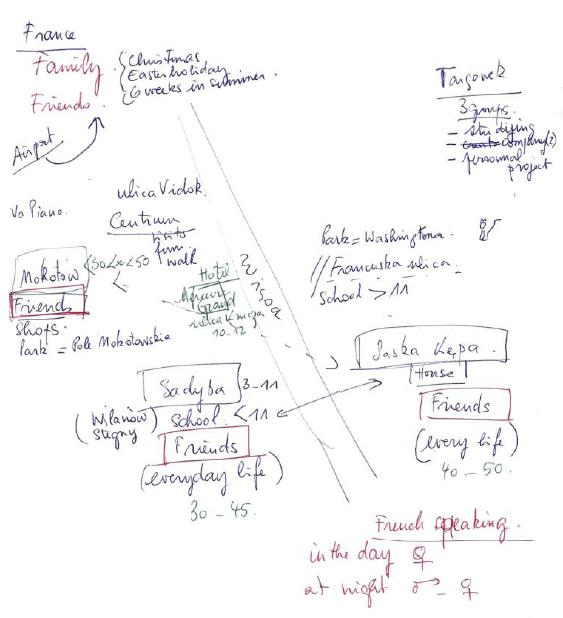 France
Family
Friends.
Christmas
Easter holiday
6 weeks in summer.
Airport
Targowek
3 groups.
- studying
- company(?)
- personnal
project
ulica Vidok.
Va Piano.
Centrum
visits
fun
walk
Mokotow
30<x<50
<
Friends
Shops.
Park = Pole Mokotowskie
Hotel
Mercure
Grand
ulica Krucza
10-12
Park = Washingtona.
// Francuska ulica
School > 11
Saska Kępa.
House
Friends
(every life)
40 - 50.
Sadyba
3-11
(Wilanów
Stegny)
School. < 11
Friends
(everyday life)
30 - 45.
French speaking.
in the day ♀
at night ♂ - ♀